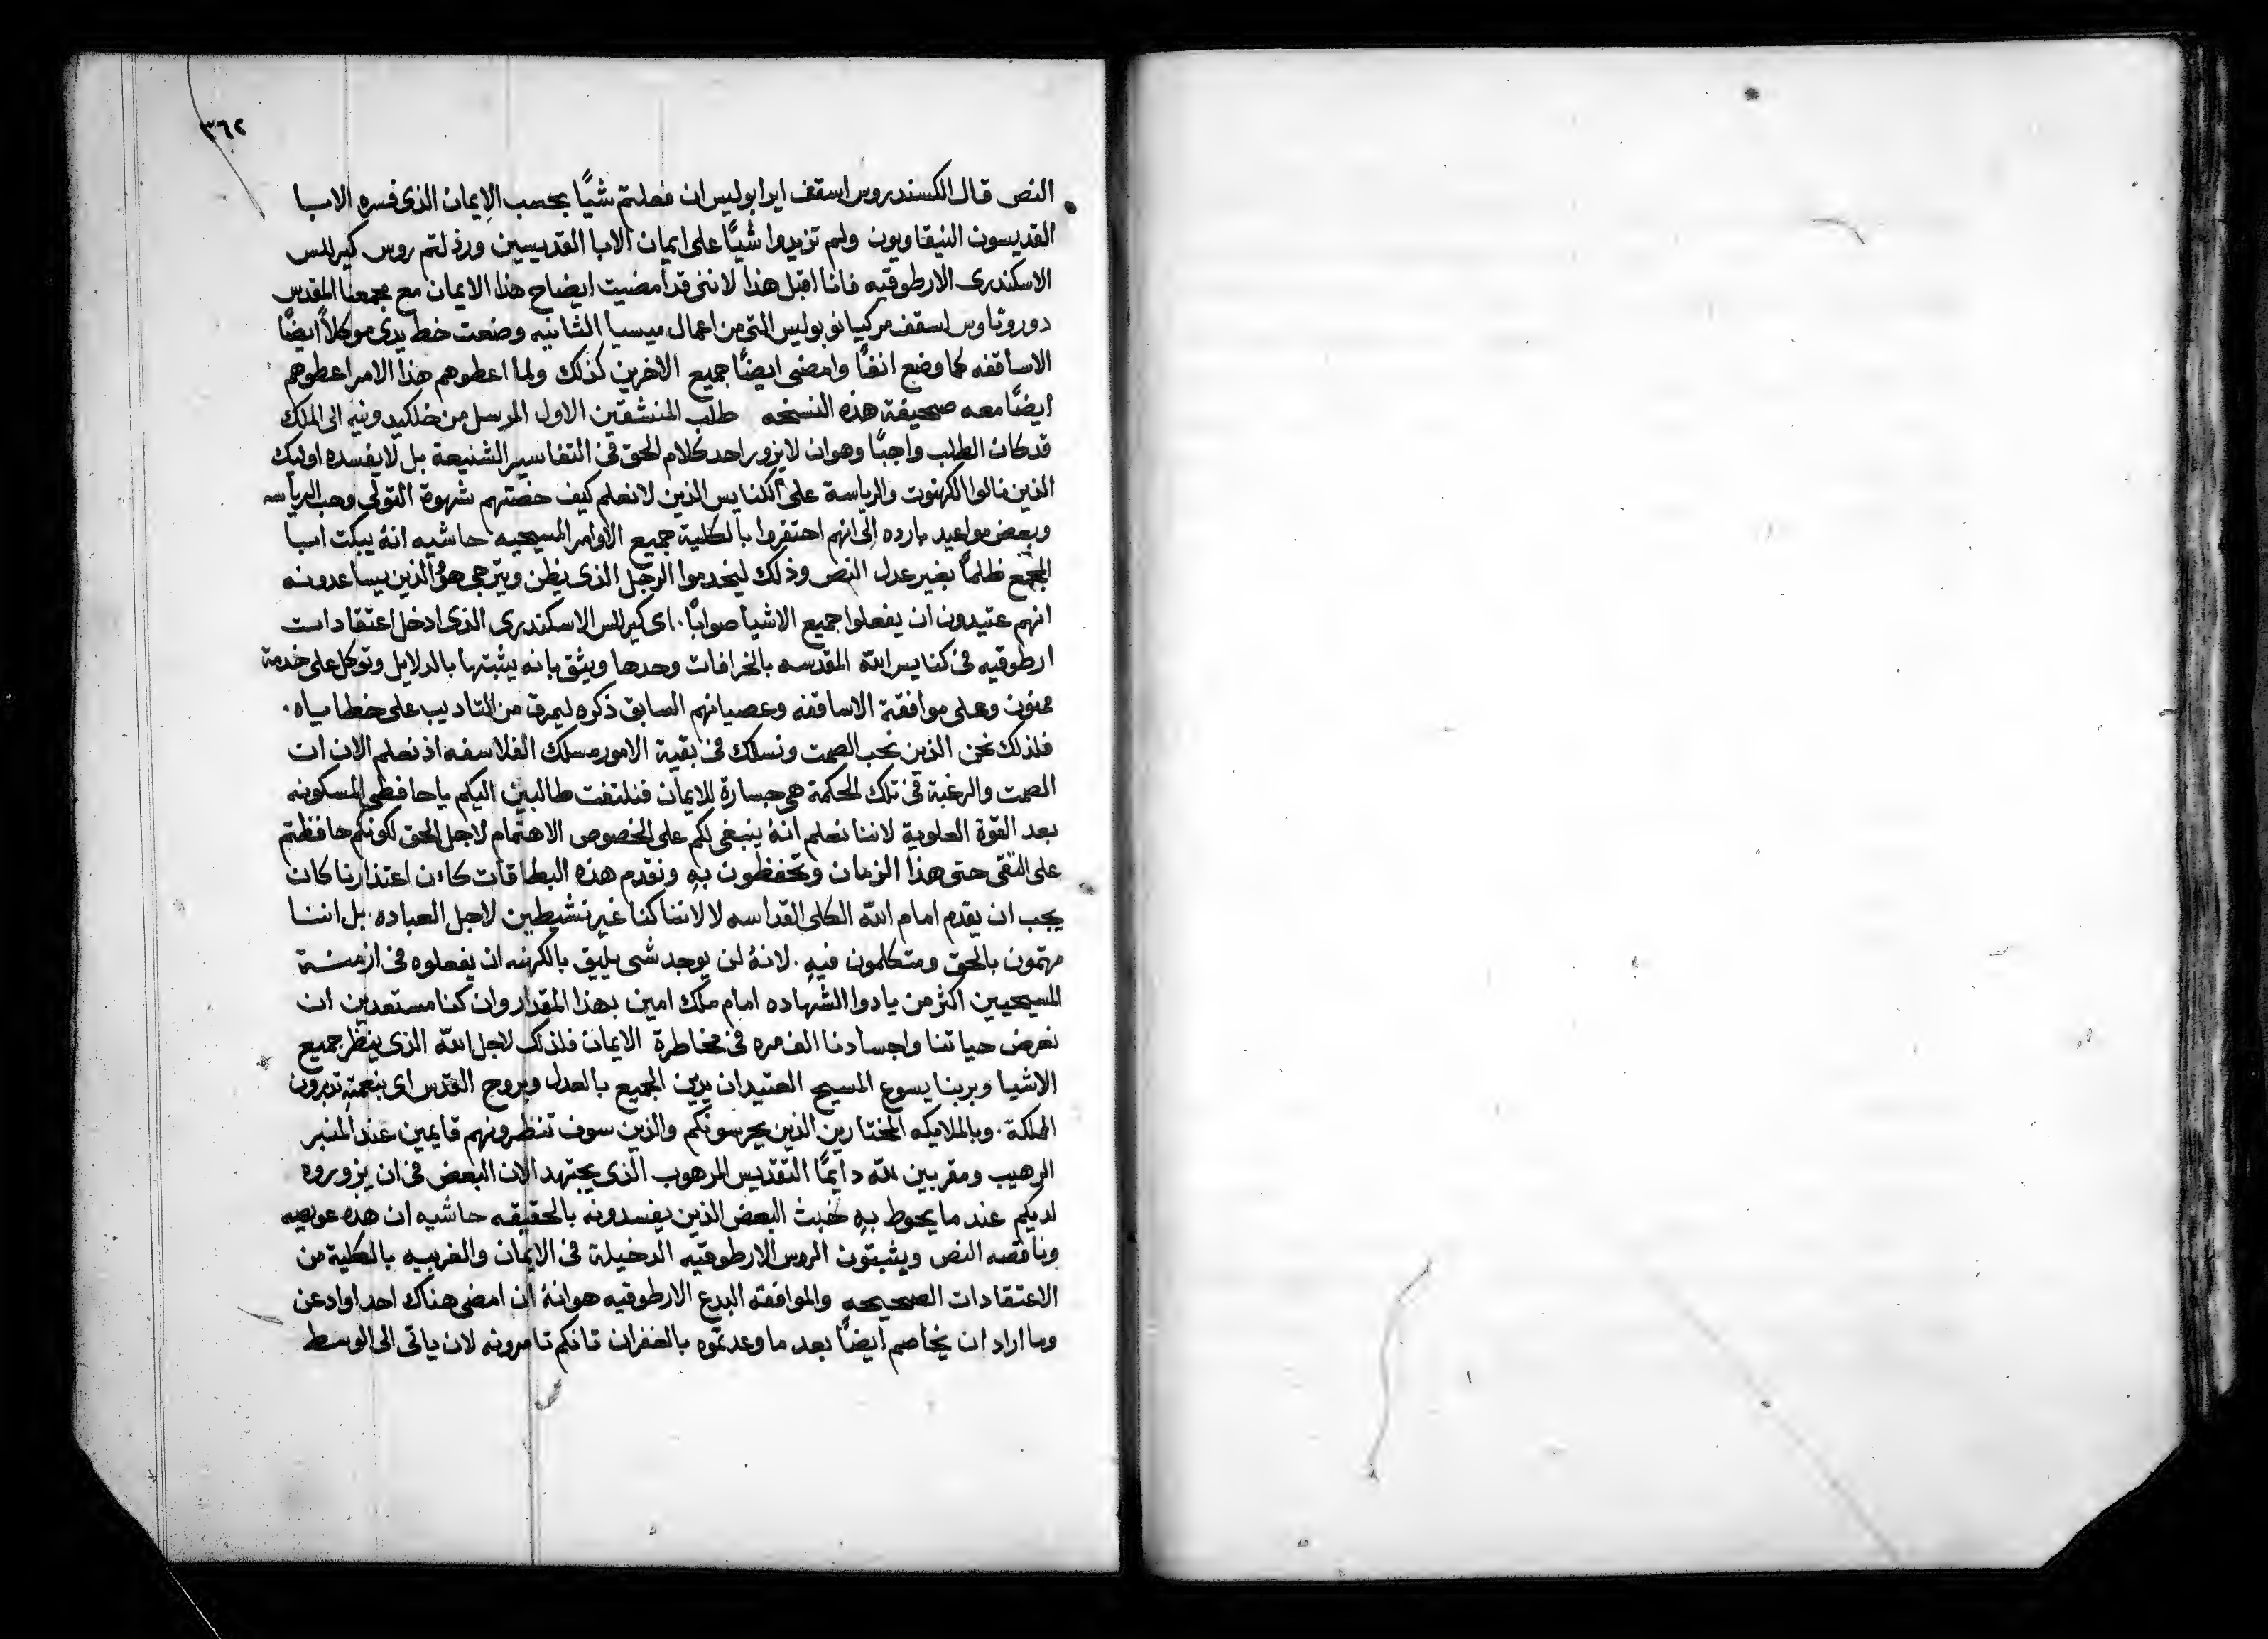 ٣٦٢
النص قال الكسندروس اسقف ايرابوليس ان فعلتم شيًا بحسب الايمان الذى فسره الابا
القديسون النيقاويون ولم تزيدوا شيًا على ايمان الابا القديسين ورذلتم روس كيرللس
الاسكندرى الارطوقيه فانا اقبل هذا لاننى قد امضيت ايضاح هذا الايمان مع مجمعنا المقدس
دوروتاوس اسقف مركيانوبوليس التى من اعمال ميسيا الثانيه وضعت خط يدى موكلاً ايضًا
الاساقفه كما وضع انفًا وامضى ايضًا جميع الاخرين كذلك ولما اعطوهم هذا الامر اعطوهم
ايضًا معه صحيفة هذه النسخه طلب المنشقين الاول المرسل من خلكيدونيه الى الملك
قد كان الطلب واجبًا وهو ان لا يزور احد كلام الحق فى التفاسير الشنيعة بل لا يفسده اوليك
الذين نالوا الكهنوت والرياسة على الكنايس الذين لا نعلم كيف شهوة التولى وحب الرياسه
وبعض مواعيد مارده الى انهم احتقروا بالكلية جميع الاوامر المسيحيه حاشيه انهُ يبكت ابا
المجمع ظلمًا بغير عدل النص وذلك ليخدموا الرجل الذى يظن ويترجى هوُ الذين يساعدونه
انهم عتيدون ان يفعلوا جميع الاشيا صوابًا. اى كيرللس الاسكندرى الذى ادخل اعتقادات
ارطوقيه فى كنايس الله المقدسه بالخرافات وحدها ويثق بانه يثبتها بالدلايل وتوكل على خدمة
ممنون وعلى موافقة الاساقفه وعصيانهم السابق ذكره ليمرق من التاديب على خطاياه.
فلذلك نحن الذين نحب الصمت ونسلك فى بقية الامور مسلك الفلاسفه اذ نعلم الان ان
الصمت والرغبة فى تلك الحكمة هى خسارة للايمان فنلتفت طالبين اليكم يا حافظى المسكونه
بعد القوة العلوية لاننا نعلم انهُ ينبغى لكم على الخصوص الاهتمام لاجل الحق لكونكم حافظتم
على التقى حتى هذا الزمان وتحفظون بهِ ونقدم هذه البطاقات كان اعتذارنا كان
يجب ان يقدم امام الله الكلى القداسه لا لاننا كنا غير نشيطين لاجل العباده. بل اننا
مهتمون بالحق ومتكلمون فيهِ. لانهُ لن يوجد شى يليق بالكهنه ان يفعلوه فى ازمنة
المسيحيين اكثر من يادوا الشهاده امام ملك امين بهذا المقدار وان كنا مستعدين ان
نعرض حياتنا واجسادنا الف مره فى مخاطرة الايمان فلذلك لاجل الله الذى ينظر جميع
الاشيا وبربنا يسوع المسيح العتيد ان يدين الجميع بالعدل وبروح القدس اى بنعمتهِ تدبرون
الملكة. وبالملايكه المختارين الذين يحرسونكم والذين سوف تنظرونهم قايمين عند المنبر
الرهيب ومقربين لله دايمًا التقديس المرهوب الذى يجتهد الان البعض فى ان يزوروه
لديكم عند ما يحوط بهِ خبث البعض الذين يفسدونه بالحقيقه حاشيه ان هذه عويصه
وناقصه النص ويثبتون الروس الارطوقيه الدخيلة فى الايمان والغريبه بالكلية من
الاعتقادات الصحيحه والموافقه البدع الارطوقيه هو انهُ ان امضى هناك احد او ادعن
وما اراد ان يخاصم ايضًا بعد ما وعدتموه بالغفران تانكم تامرونه لان ياتى الى الوسط